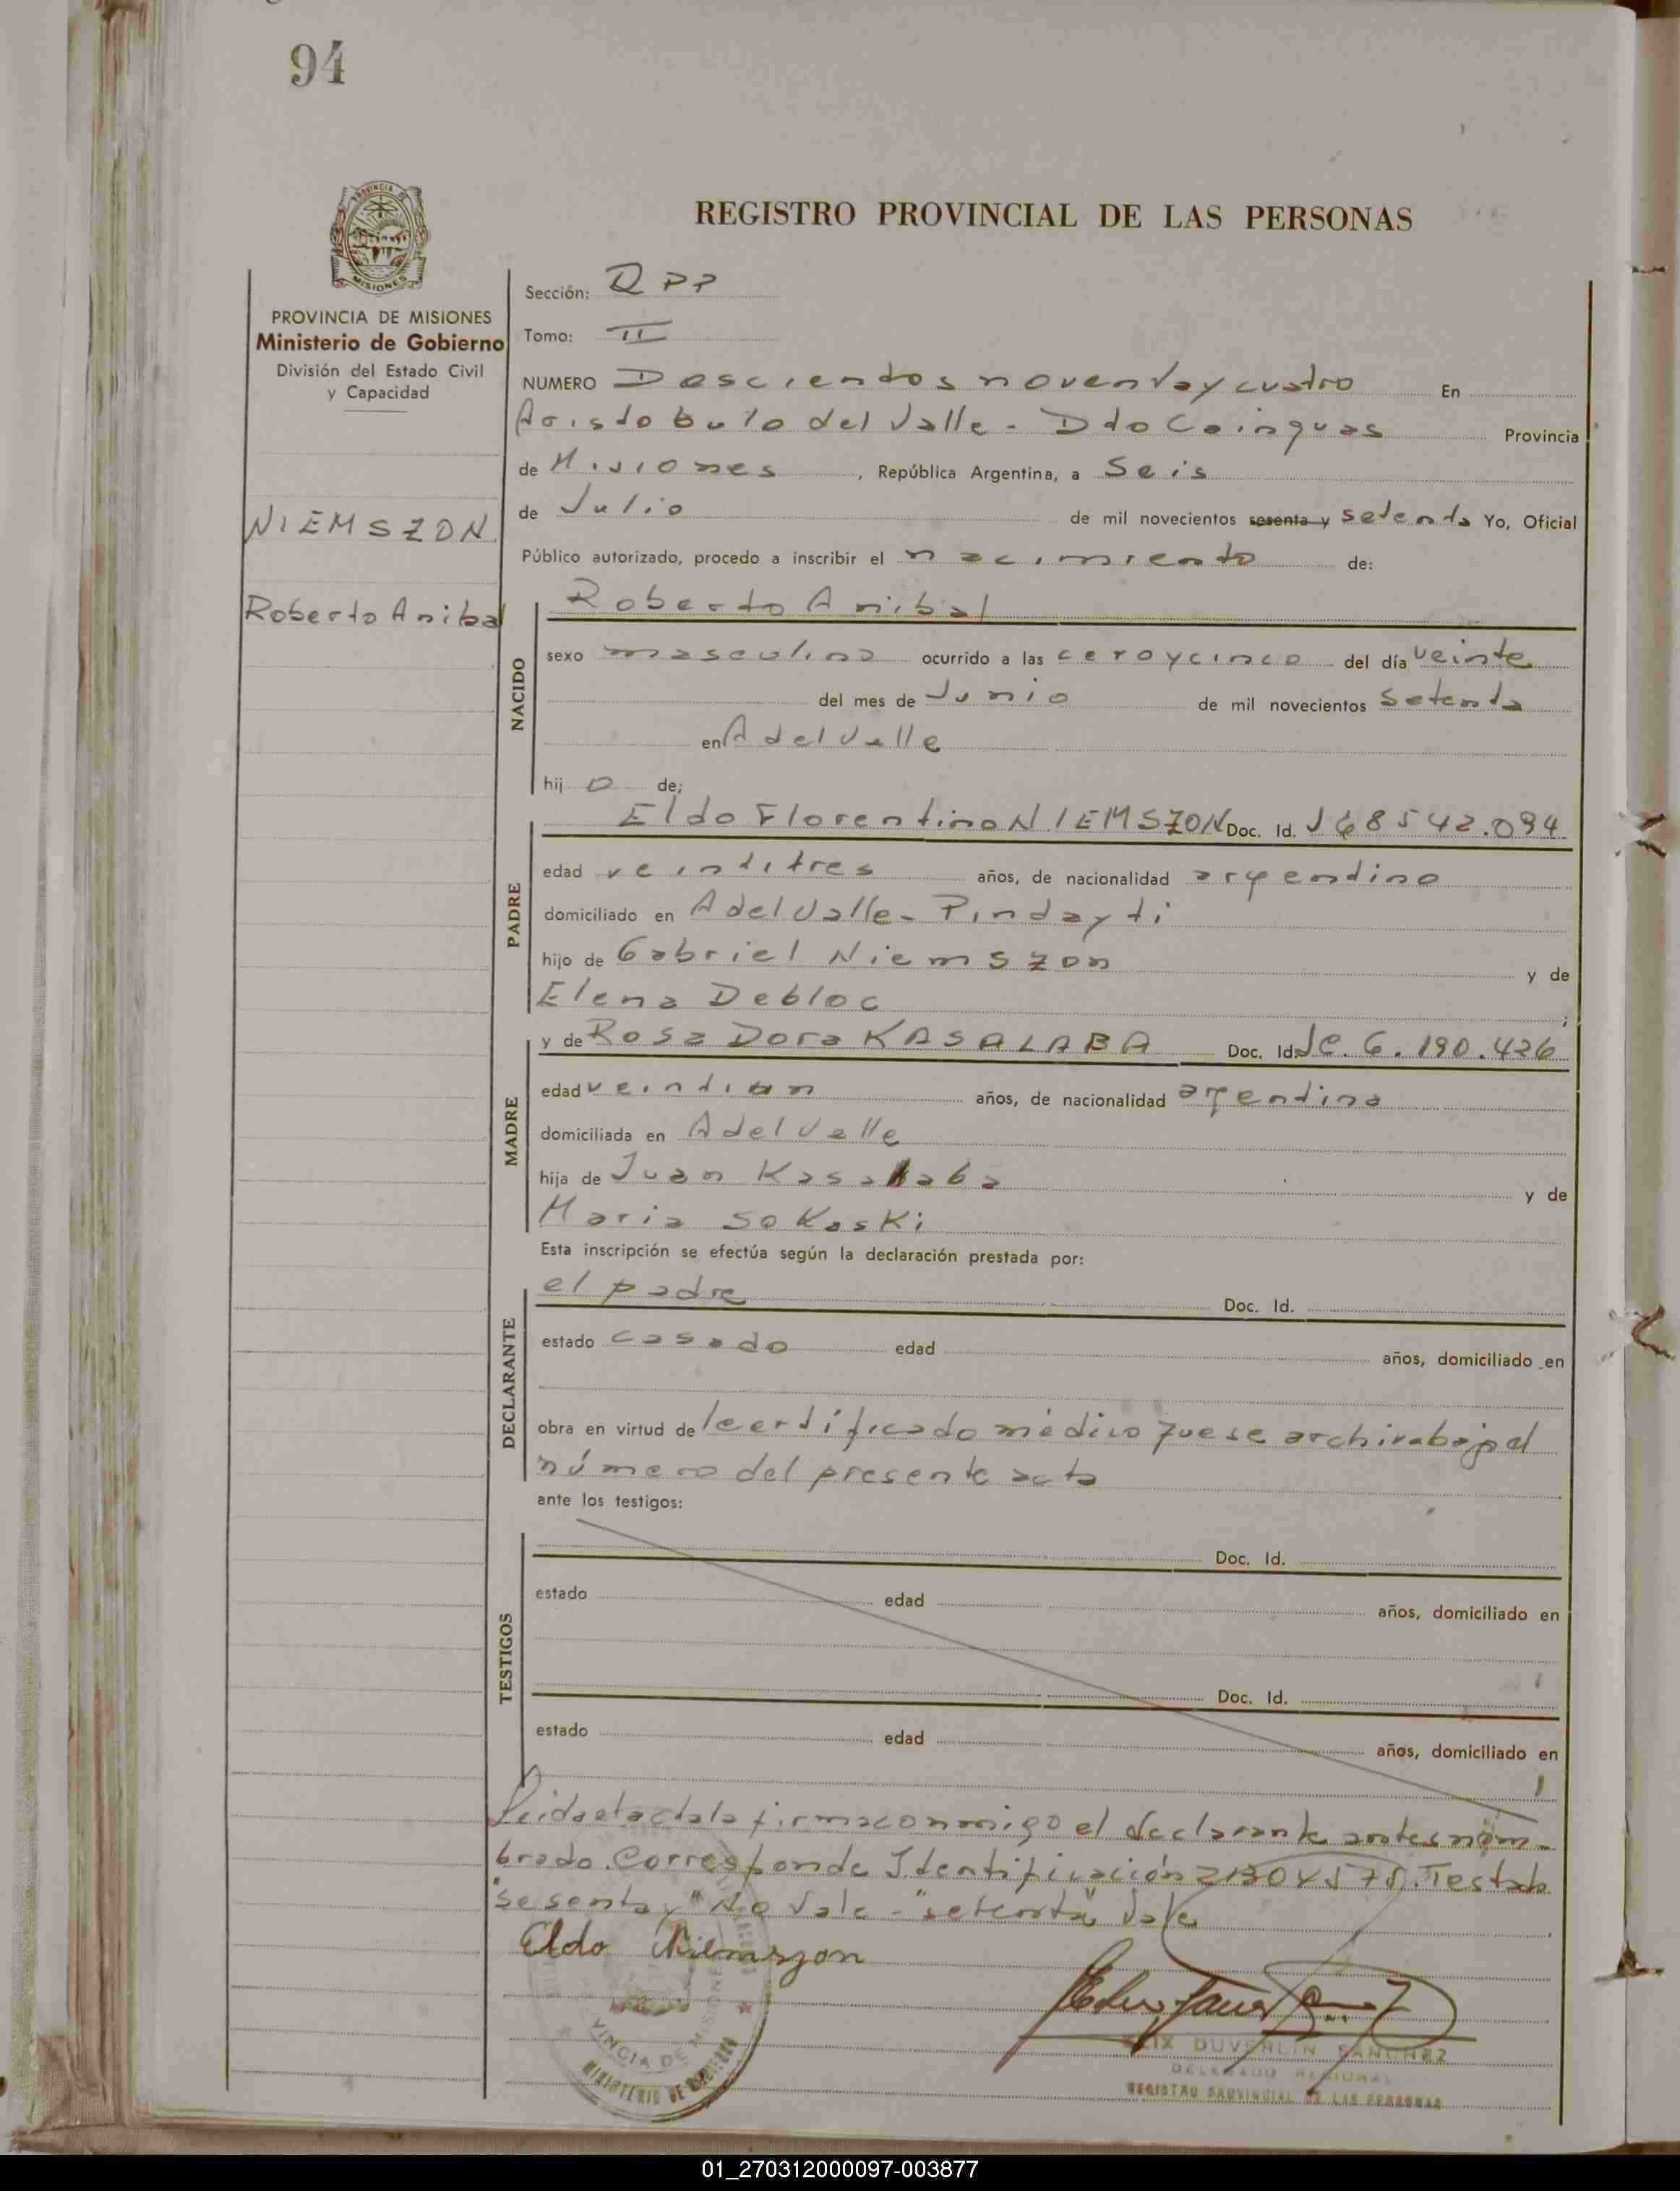 94
REGISTRO PROVINCIAL DE LAS PERSONAS
PROVINCIA
MISIONES
PROVINCIA DE MISIONES
Ministerio de Gobierno
División del Estado Civil
y Capacidad
NIEMSZON
Roberto Anibal
Sección: QPP
Tomo: II
NUMERO Doscientos noventa y cuatro En
Aristobulo del Valle - Dto Cainguas Provincia
de Misiones, República Argentina, a Seis
de Julio de mil novecientos sesenta y setenta Yo, Oficial
Público autorizado, procedo a inscribir el nacimiento de:
NACIDO
Roberto Anibal
sexo masculino ocurrido a las cero y cinco del día veinte
del mes de Junio de mil novecientos setenta
en A del Valle
hij o de;
PADRE
Eldo Florentino NIEMSZON Doc. Id. 8542.094
edad veintitres años, de nacionalidad argentino
domiciliado en A del Valle - Pindayti
hijo de Gabriel Niemszon y de
Elena Debloc ;
MADRE
y de Rosa Dora KASALABA Doc. Id. 6.190.426
edad veintiun años, de nacionalidad argentina
domiciliada en A del Valle
hija de Juan Kasalaba y de
Maria Sokoski
Esta inscripción se efectúa según la declaración prestada por:
DECLARANTE
el padre Doc. Id.
estado casado edad años, domiciliado en
obra en virtud de l certificado médico que se archiva bajo el
número del presente acta
ante los testigos:
TESTIGOS
Doc. Id.
estado edad años, domiciliado en
Doc. Id.
estado edad años, domiciliado en
Leida el acta la firma conmigo el declarante antes nom-
brado. Corresponde Identificación Testado
"sesenta y" No Vale - "setenta" Vale
Eldo Niemszon
VINCIA DE MISIONES
MINISTERIO DE GOBIERNO
DUVERLIN SANCHEZ
DELEGADO REGIONAL
REGISTRO PROVINCIAL DE LAS PERSONAS
01_270312000097-003877